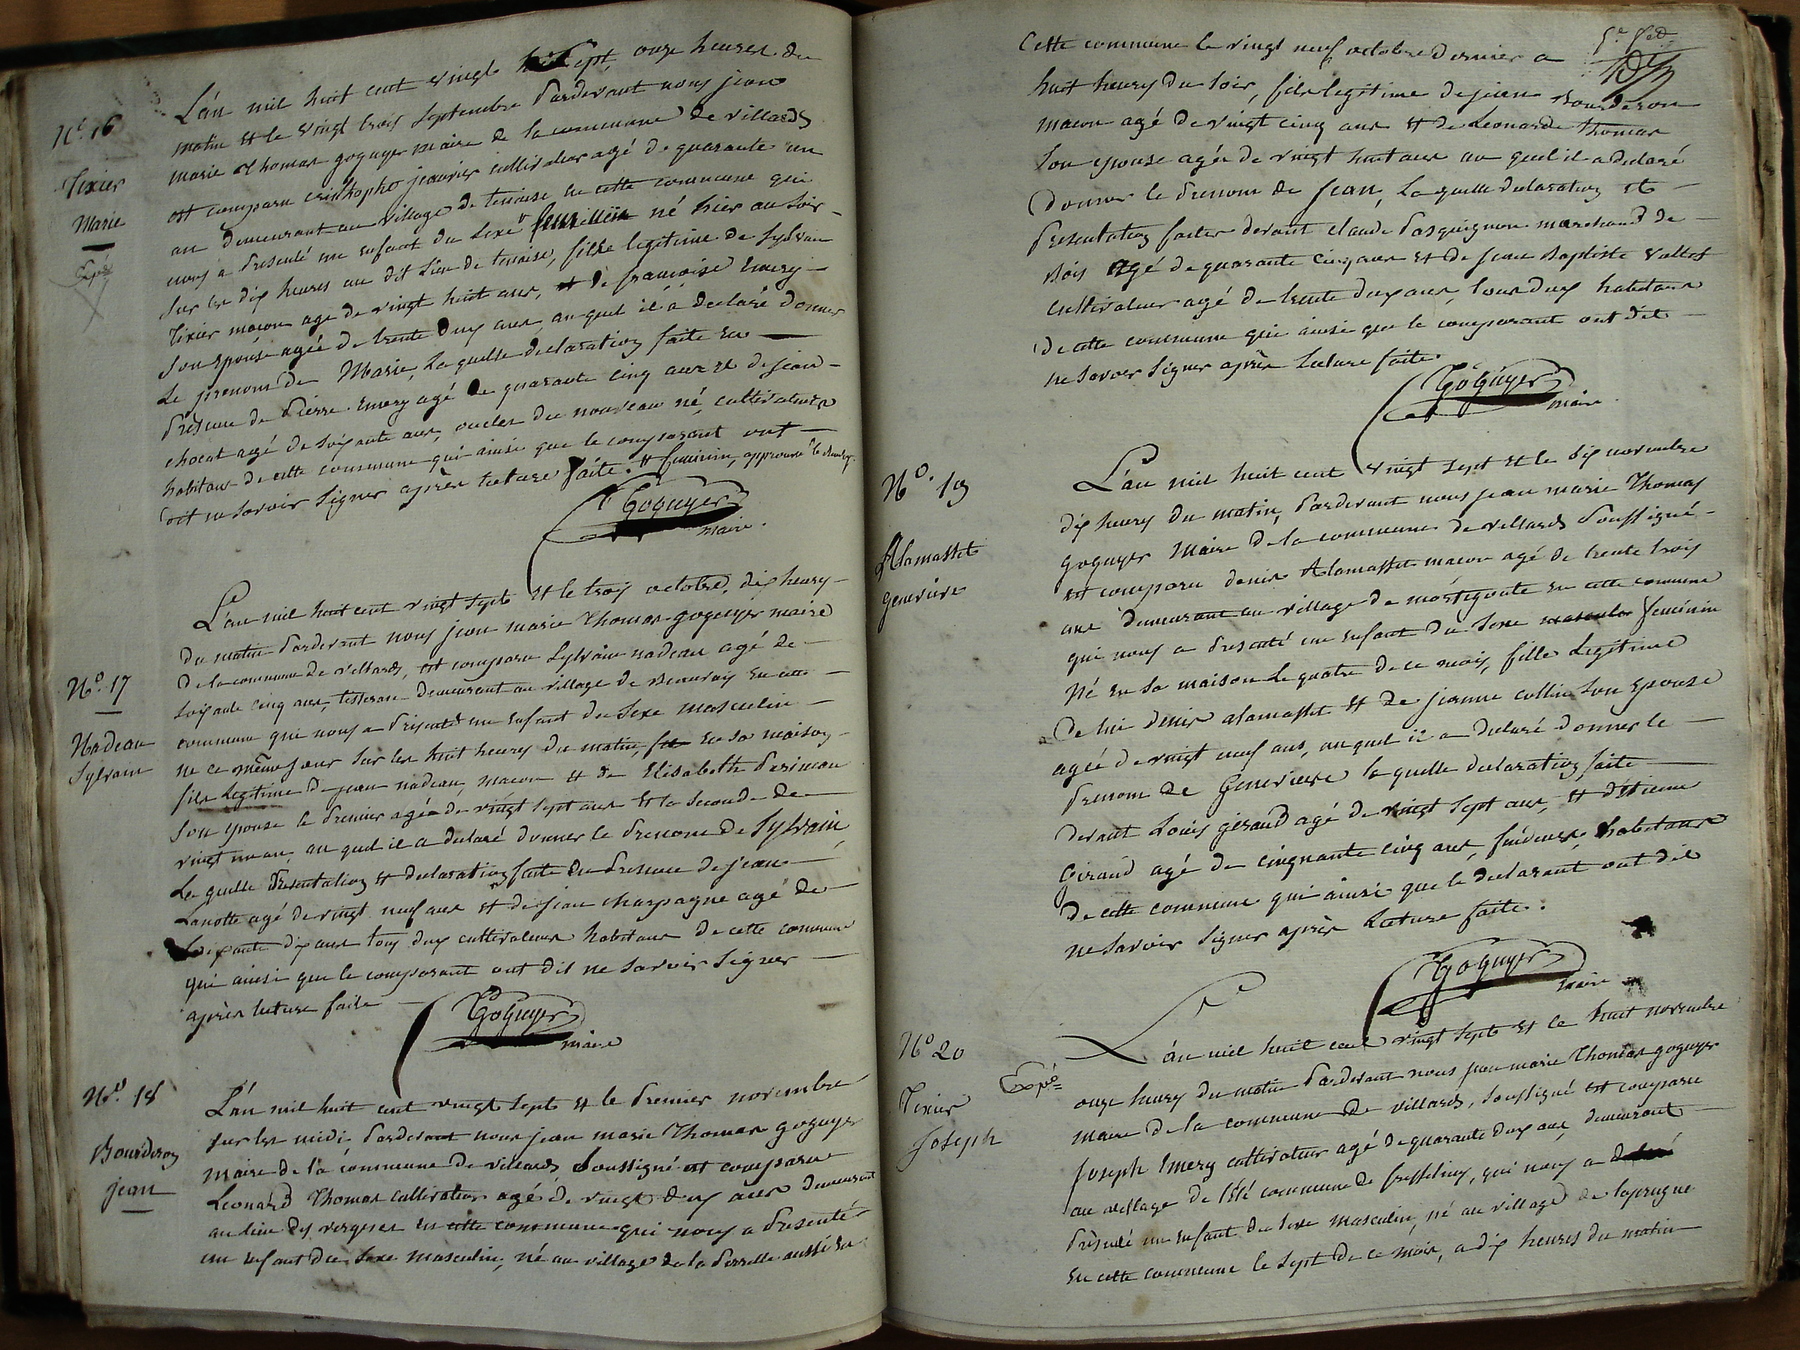 N.° 16
Tixier
Marie
Expé
L'an mil huit cent vingt sept, onze heures du
matin et le vingt trois Septembre Pardevant nous jean
marie Thomas goguyer maire de la commune de villards
est comparu christophe janvier cultivateur agé de quarante un
an demeurant au village de tenaise en cette commune qui
nous a presenté un enfant du sexe né hier au soir
sur les dix heures au dit lieu de tenaise, fille legitime de Sylvain
Tixier maçon agé de vingt huit ans, et de françoise Emery
son épouse agée de trente deux ans, au quel il a declaré donner
Le prenom de Marie, La quelle declaration faite en
Presence de Pierre Emery agé de quarante cinq ans et de jean
chocat agé de soixante ans, oncles du nouveau né, cultivateurs
habitans de cette commune qui ainsi que le comparant ont
dit ne savoir signer après lecture faite. # feminin, approuvé
Goguyer
maire.
N.° 17
Nadeau
Sylvain
L'an mil huit cent vingt sept et le trois octobre, dix heures
du matin Pardevant nous jean marie Thomas goguyer maire
De la commune de villards, est comparu Sylvain nadeau agé de
soixante cinq ans, tisseran demeurant au village de Beauvais en cette
commune qui nous a présenté un enfant du sexe masculin
né ce même jour sur les huit heures du matin, en sa maison
fils Legitime de jean nadeau, macon et de Elisabeth Perineau
son épouse le premier agé de vingt sept ans et la seconde de
vingt un an, au quel il a declaré donner le Prenom de Sylvain,
La quelle Presentation et declaration faite en Presence de jean
Lanotte agé de vingt neuf ans et de jean charpagne agé de
Soixante dix ans tous deux cultivateurs habitans de cette commune
qui ainsi que le comparant ont dit ne savoir signer
après lecture faite
Goguyer
maire
N.° 18
Bourderon
jean
L'an mil huit cent vingt sept et le Premier novembre
sur les midi Pardevant nous jean marie Thomas goguyer
maire de la commune de villards soussigné est comparu
Leonard Thomas cultivateur agé de vingt deux ans demeurant
au lieu des vergnes en cette commune qui nous a Presenté
un enfant du sexe masculin, né au village de la Perelle aussi en
Cette commune le vingt neuf octobre dernier a
huit heures du soir, fils legitime de jean Bourderon
macon agé de vingt cinq ans et de Leonarde Thomas
son épouse agée de vingt huit ans au quel il a declaré
Donner le Prenom de Jean, La quelle declaration et
Presentation faites devant claude Pasquignon marchand de
Bois agé de quarante cinq ans et de jean Baptiste Vallet
cultivateur agé de trente deux ans, tous deux habitans
de cette commune qui ainsi que le comparant ont dit
ne savoir signer après Lecture faite.
Goguyer
maire.
N.° 19
Alamassets
geneviève
L'an mil huit cent vingt sept et le six novembre
dix heures du matin, Pardevant nous jean marie Thomas
goguyer Maire de la commune de villards soussigné
est comparu denis Alamasset macon agé de trente trois
ans demeurant au village de en cette commune
qui nous a presenté un enfant du sexe masculin feminin
né en sa maison Le quatre de ce mois, fille Legitime
de lui denis alamasset et de jeanne collin son épouse
agée de vingt neuf ans, au quel il a declaré donner le
Prenom de Genevieve la quelle declaration faite
devant Louis giraud agé de vingt sept ans, et d'etienne
Giraud agé de cinquante cinq ans, habitans
de cette commune qui ainsi que le declarant ont dit
ne savoir signer après Lecture faite.
Goguyer
maire
N.° 20
Tixier
Joseph
Expé
L'an mil huit cent vingt sept et le huit novembre
onze heures du matin Pardevant nous jean marie Thomas goguyer
maire de la commune de villards, soussigné est comparu
Joseph Emery cultivateur agé de quarante deux ans, demeurant
au village de l'été commune de fresselines, qui nous a
Présenté un enfant du sexe masculin, né au village de laprugne
en cette commune le sept de ce mois, a dix heures du matin